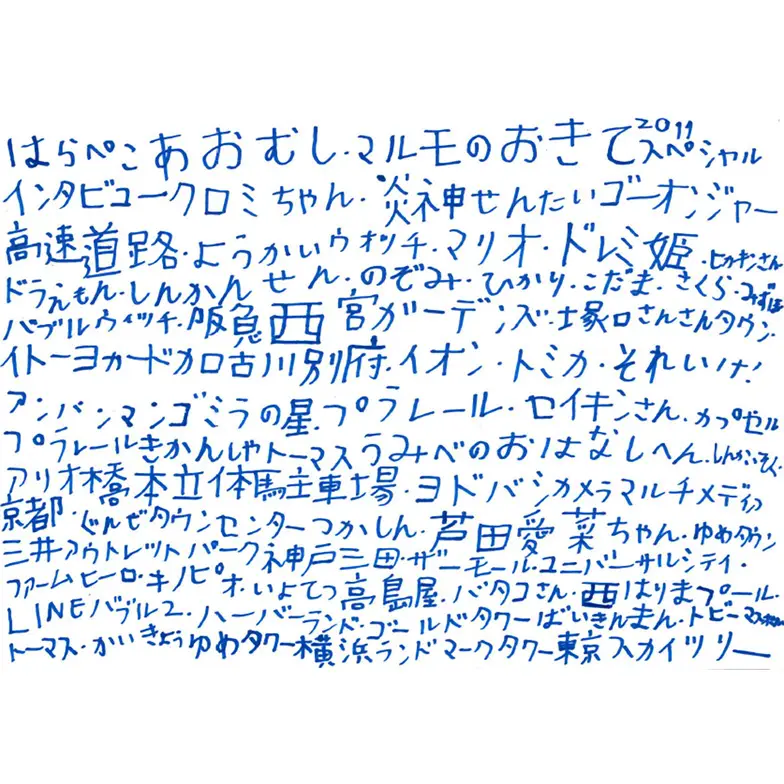 はらぺこあおむし・マルモのおきて2011スペシャル
インタビュークロミちゃん・炎神せんたいゴーオンジャー
高速道路・ようかいウォッチ・マリオ・ドレミ姫・ヒカキンさん
ドラえもん・しんかんせん・のぞみ・ひかり・こだま・さくら・みずほ
バブルウィッチ・阪急西宮ガーデンズ・塚口さんさんタウン・
イトーヨカードカロ古川別府・イオン・トミカ・それいけ!
アンパンマンゴミラの星・プラレール・セイキンさん・カプセル
プラレールきかんしゃトーマスうみべのおはなしへん・しんかいそく・
アリオ橋本立体馬主車場・ヨドバシカメラマルチメディア
京都・ぐんぜタウンセンターつかしん・芦田愛菜ちゃん・ゆめタウン
三井アウトレットパーク神戸三田・ザ・モール・ユニバーサルシティ・
ファームヒーロ・キノピオ・いよてつ高島屋・バタコさん・西はりまプール・
LINEバブル2・ハーバーランド・ゴールドタワーばいきんまん・トビー
トーマス・かいきょうゆめタワー横浜ランドマークタワー東京スカイツリー